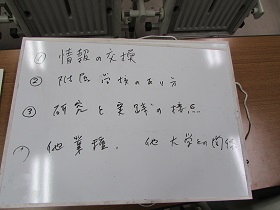 ① 情報の交換
② 附属学校のあり方
③ 研究と実践の接点
他業種、他大学との関係